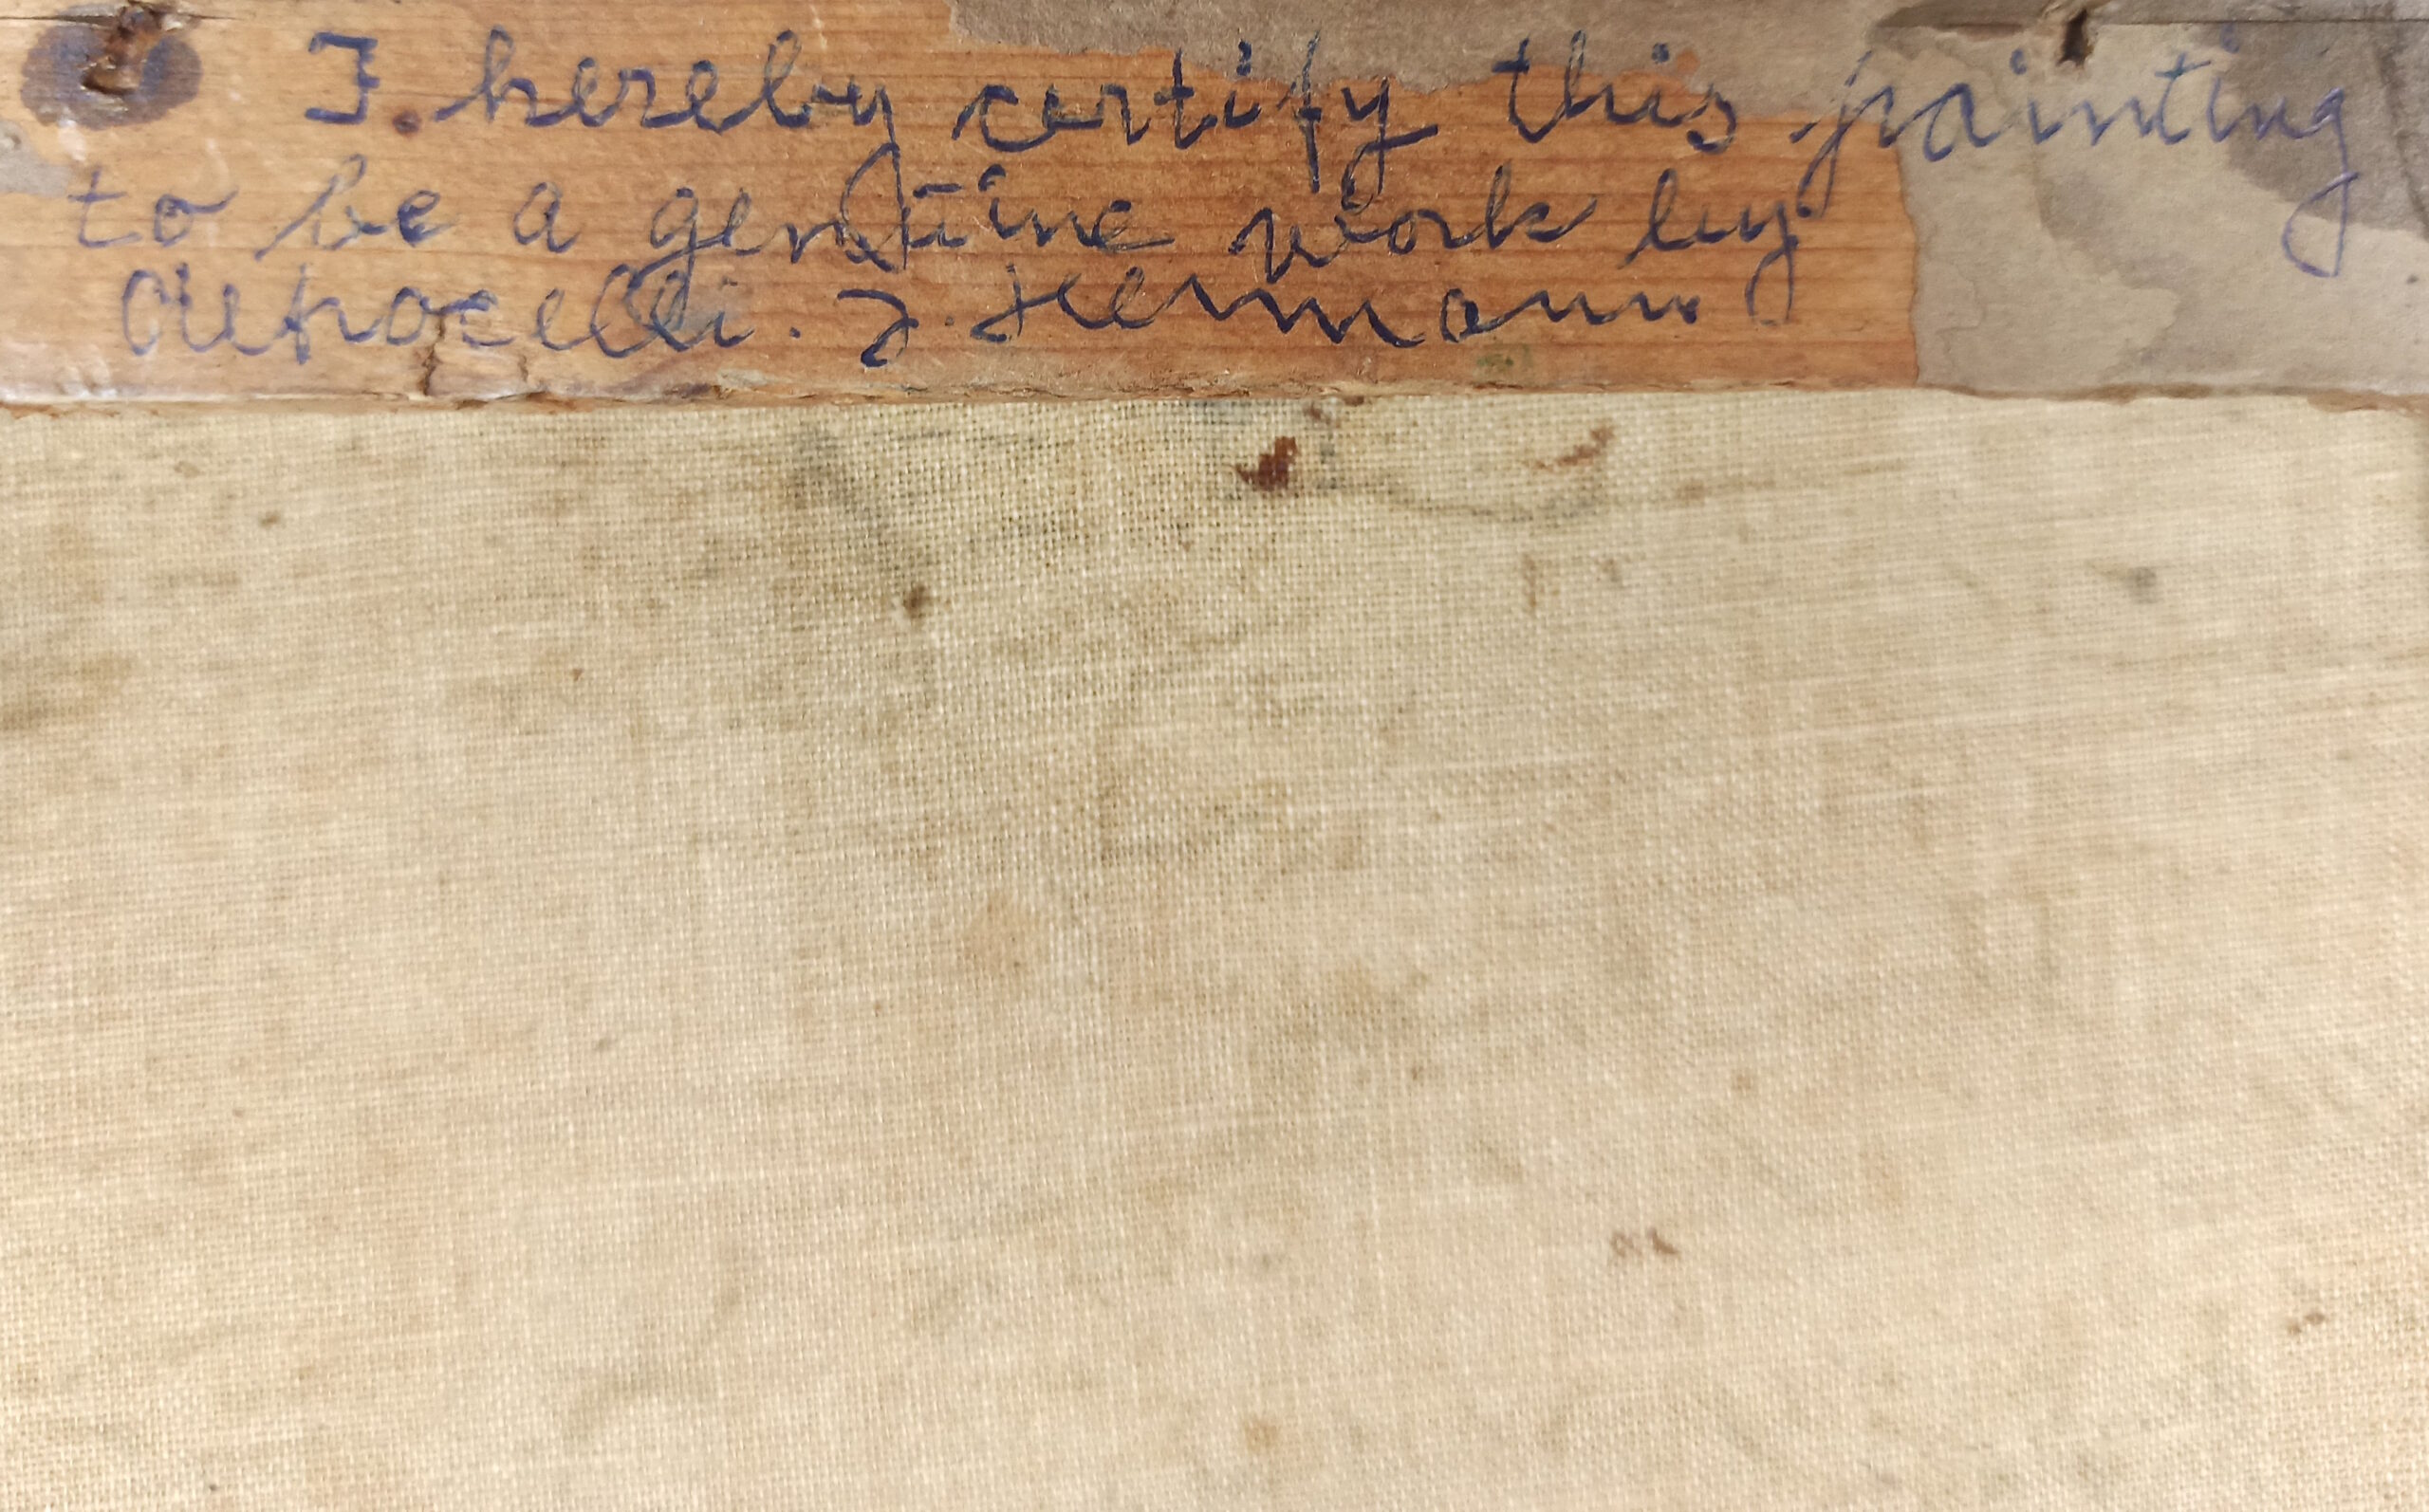 I. hereby certify this painting
to be a genuine work by
J. Hermann